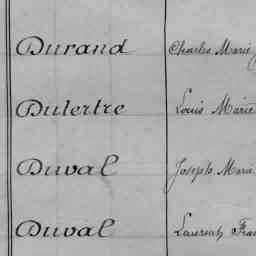 Durand Charles Marie
Dutertre Louis Marie
Duval Joseph Marie
Duval Laurent, Fra